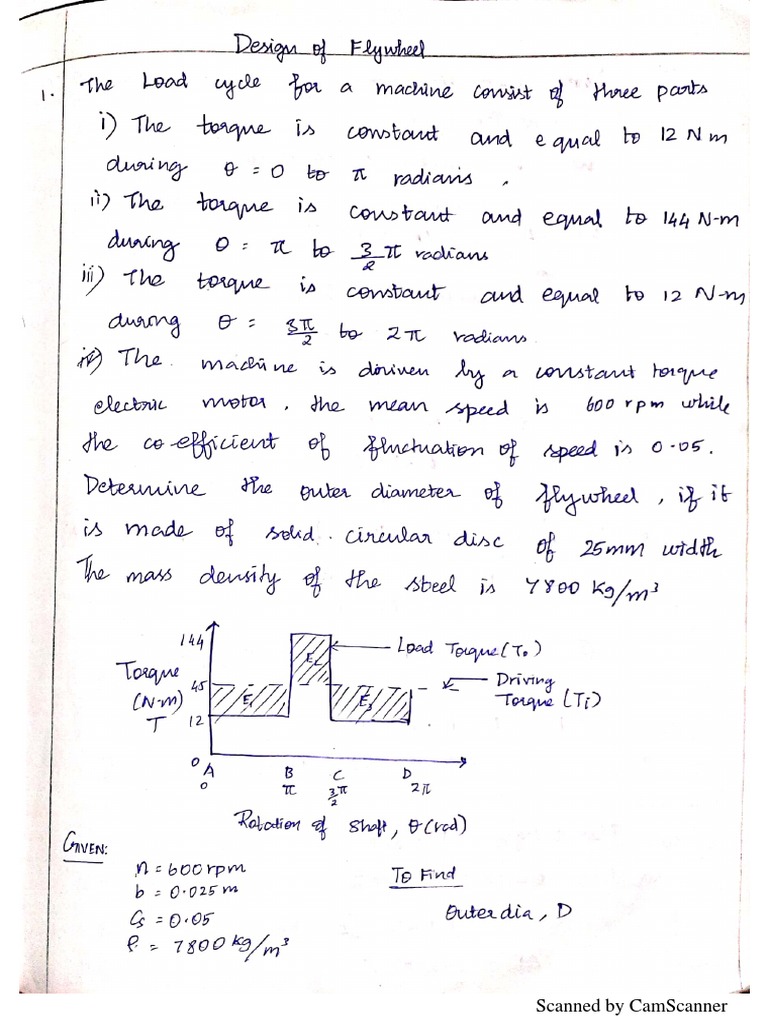 Design of Flywheel
1. The Load cycle for a machine consist of three parts
i) The torque is constant and equal to 12 N m
during θ = 0 to π radians .
ii) The torque is constant and equal to 144 N-m
during θ = π to 3/2 π radians
iii) The torque is constant and equal to 12 N-m
during θ = 3π/2 to 2π radians
iv) The machine is driven by a constant torque
electric motor . the mean speed is 600 rpm while
the co-efficient of fluctuation of speed is 0.05.
Determine the outer diameter of flywheel , if it
is made of solid . circular disc of 25mm width
The mass density of the steel is 7800 kg/m³
144
Load Torque (To)
E2
Torque
(N-m)
T
45
E1
E3
Driving
Torque (Ti)
12
0
A B C D
0 π 3/2 π 2π
Rotation of shaft, θ (rad)
GIVEN:
n = 600 rpm
b = 0.025 m
Cs = 0.05
ρ = 7800 kg/m³
To Find
Outer dia , D
Scanned by CamScanner